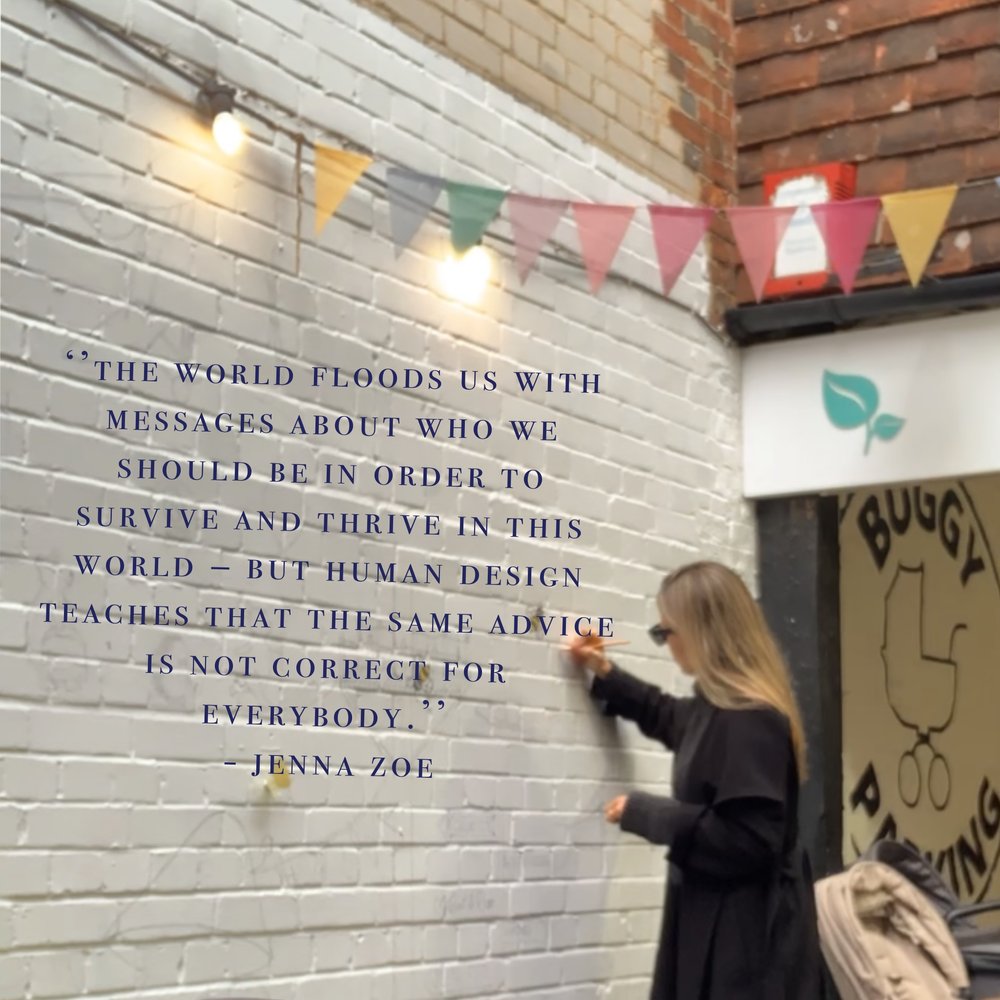 ‘’THE WORLD FLOODS US WITH
MESSAGES ABOUT WHO WE
SHOULD BE IN ORDER TO
SURVIVE AND THRIVE IN THIS
WORLD – BUT HUMAN DESIGN
TEACHES THAT THE SAME ADVICE
IS NOT CORRECT FOR
EVERYBODY.’’
- JENNA ZOE
BUGGY
PARKING